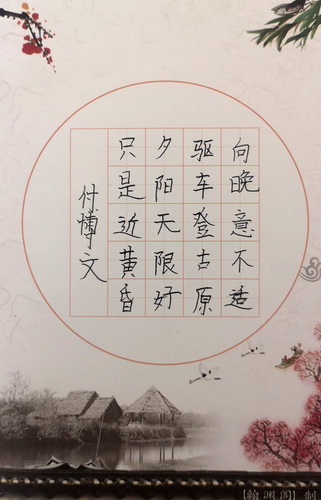 向晚意不适
驱车登古原
夕阳无限好
只是近黄昏
付博文
【翰渊阁】制